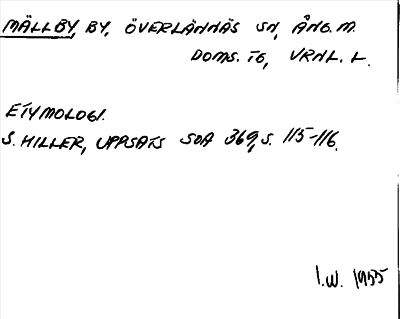 MÄLLBY BY, ÖVERLÄNNÄS SN, ÅNG. M.
DOMS. TG, VRNL. L.
ETYMOLOGI.
S. HILLER, UPPSATS SOA 369, S. 115-116.
I.W. 1955